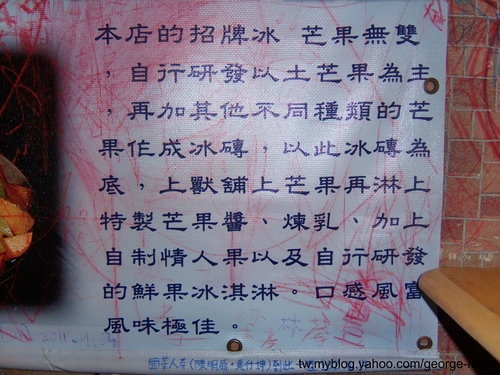 本店的招牌冰 芒果無雙
，自行研發以土芒果為主
，再加其他不同種類的芒
果作成冰磚，以此冰磚為
底，上獸舖上芒果再淋上
特製芒果醬、煉乳、加上
自制情人果以及自行研發
的鮮果冰淇淋。口感風富
風味極佳。
tw.myblog.yahoo.com/george-